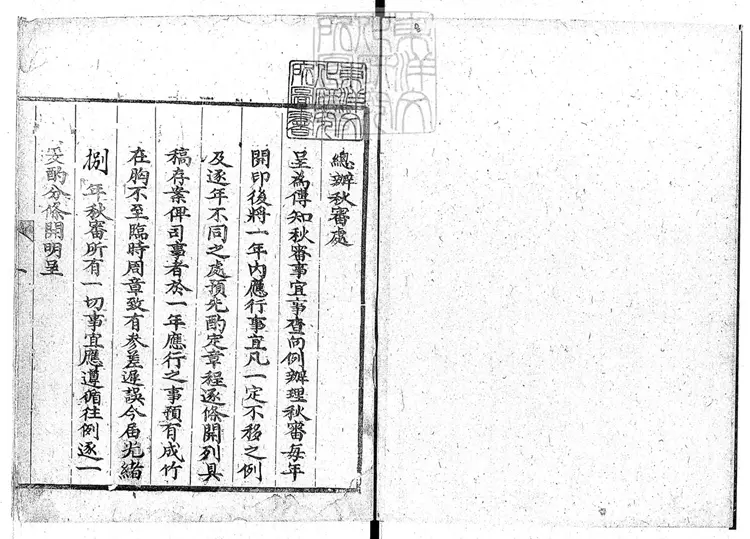 總辦秋審處
呈為傳知秋審事宜事查向例辦理秋審每年
開印後將一年內應行事宜凡一定不移之例
及逐年不同之處預先酌定章程逐條開列具
稿存案俾司事者於一年應行之事預有成竹
在胸不至臨時周章致有參差遲誤今屆光緒
捌年秋審所有一切事宜應遵循往例逐一
妥酌分條開明呈
東洋文
化研究
所圖書